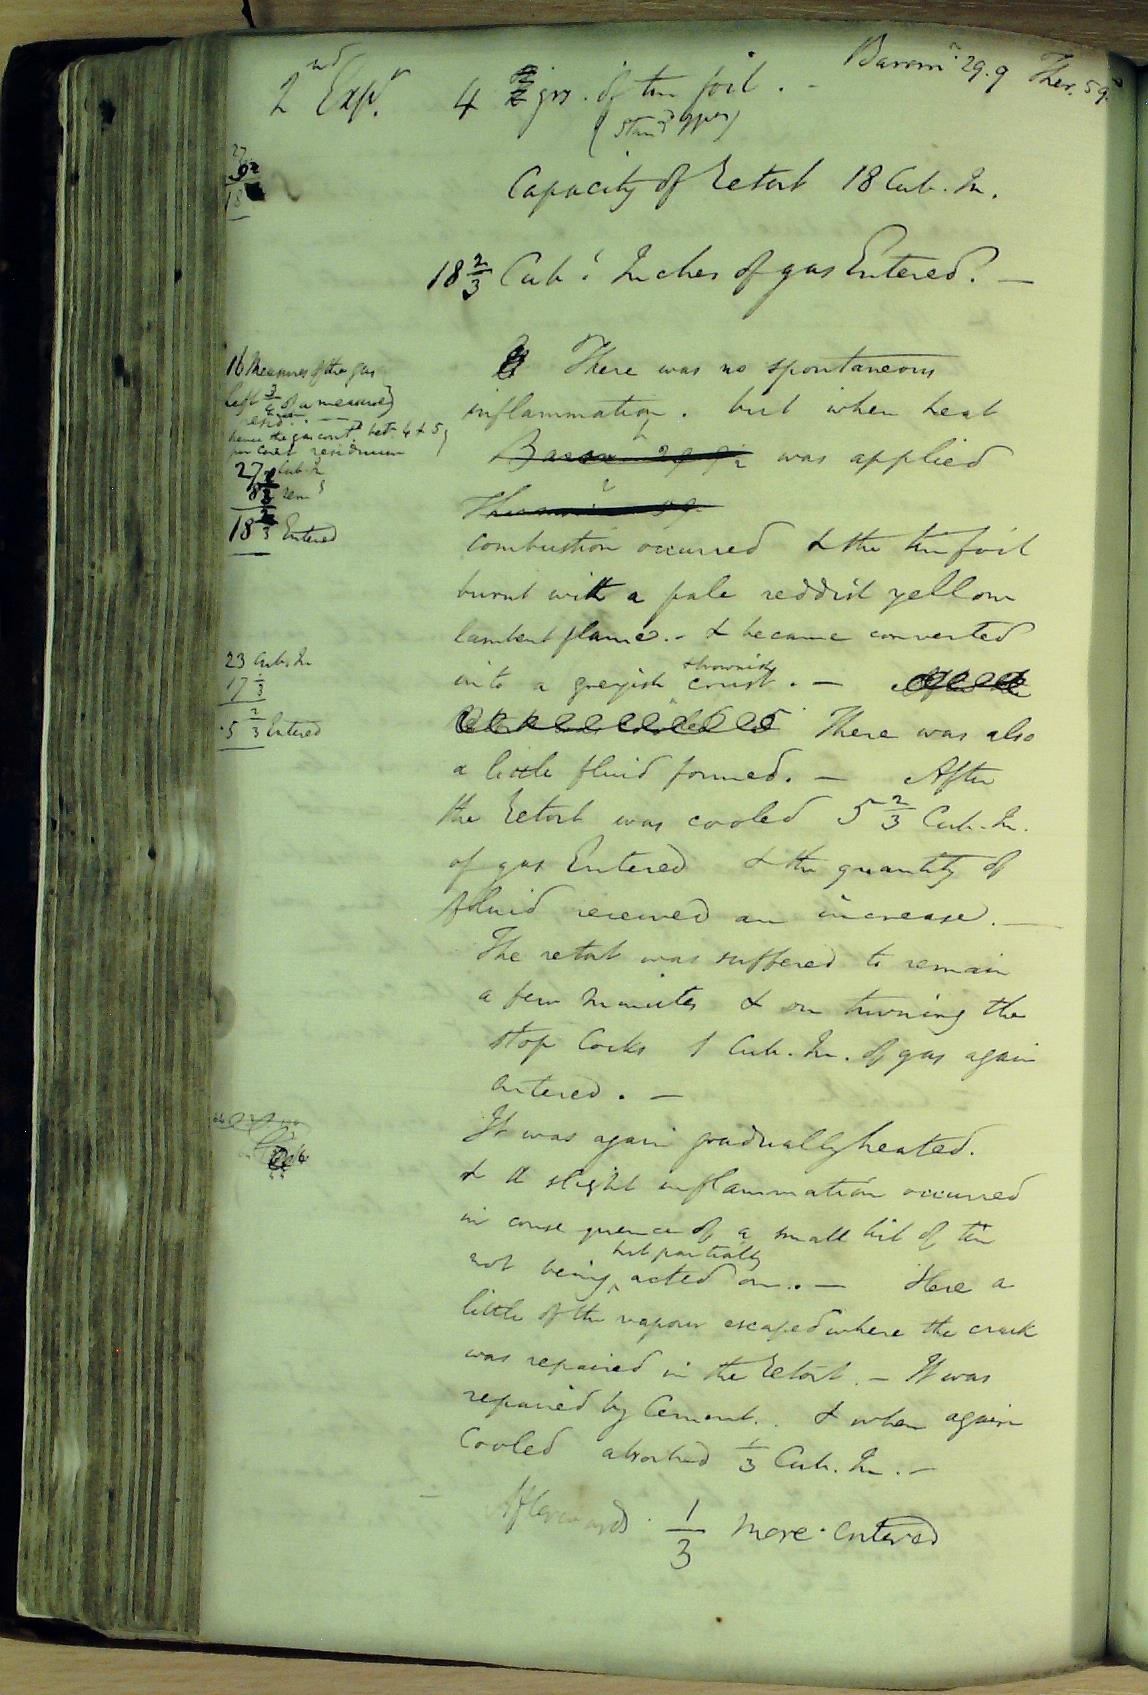 Barom^r 29.9 Ther. 59.
2^nd Exp^t. 4 grs. of tin foil. -
Capacity of Retort 18 Cub. In.
18 2/3 Cub^c Inches of gas Entered. —
There was no spontaneous
inflammation. but when heat
Barom^r 29.9 was applied
Thermom^r 59.
combustion occurred & the tin foil
burnt with a pale reddish yellow
lambent flame. - & became converted
& brownish
into a greyish crust. —
There was also
a little fluid formed. — After
the Retort was cooled 5 2/3 Cub. In.
of gas Entered & the quantity of
fluid received an increase. —
The retort was suffered to remain
a few minutes & on turning the
stop Cocks 1 Cub. In. of gas again
entered. —
It was again gradually heated.
& A slight inflammation occurred
in consequence of a small bit of tin
but partially
not being ^ acted on. — Here a
little of the vapour escaped where the crack
was repaired in the Retort. - It was
repaired by Cement. & when again
Cooled absorbed 1/3 Cub. In. -
Afterwards 1/3 more entered
16 Measures of the gas
left 3/4 of a measure
hence the gas cont^d. bet. 4 & 5
per Cent residuum
27 Cub. In
8 rem^g
18 2/3 Entered
23 Cub. In
17 1/3
5 2/3 Entered